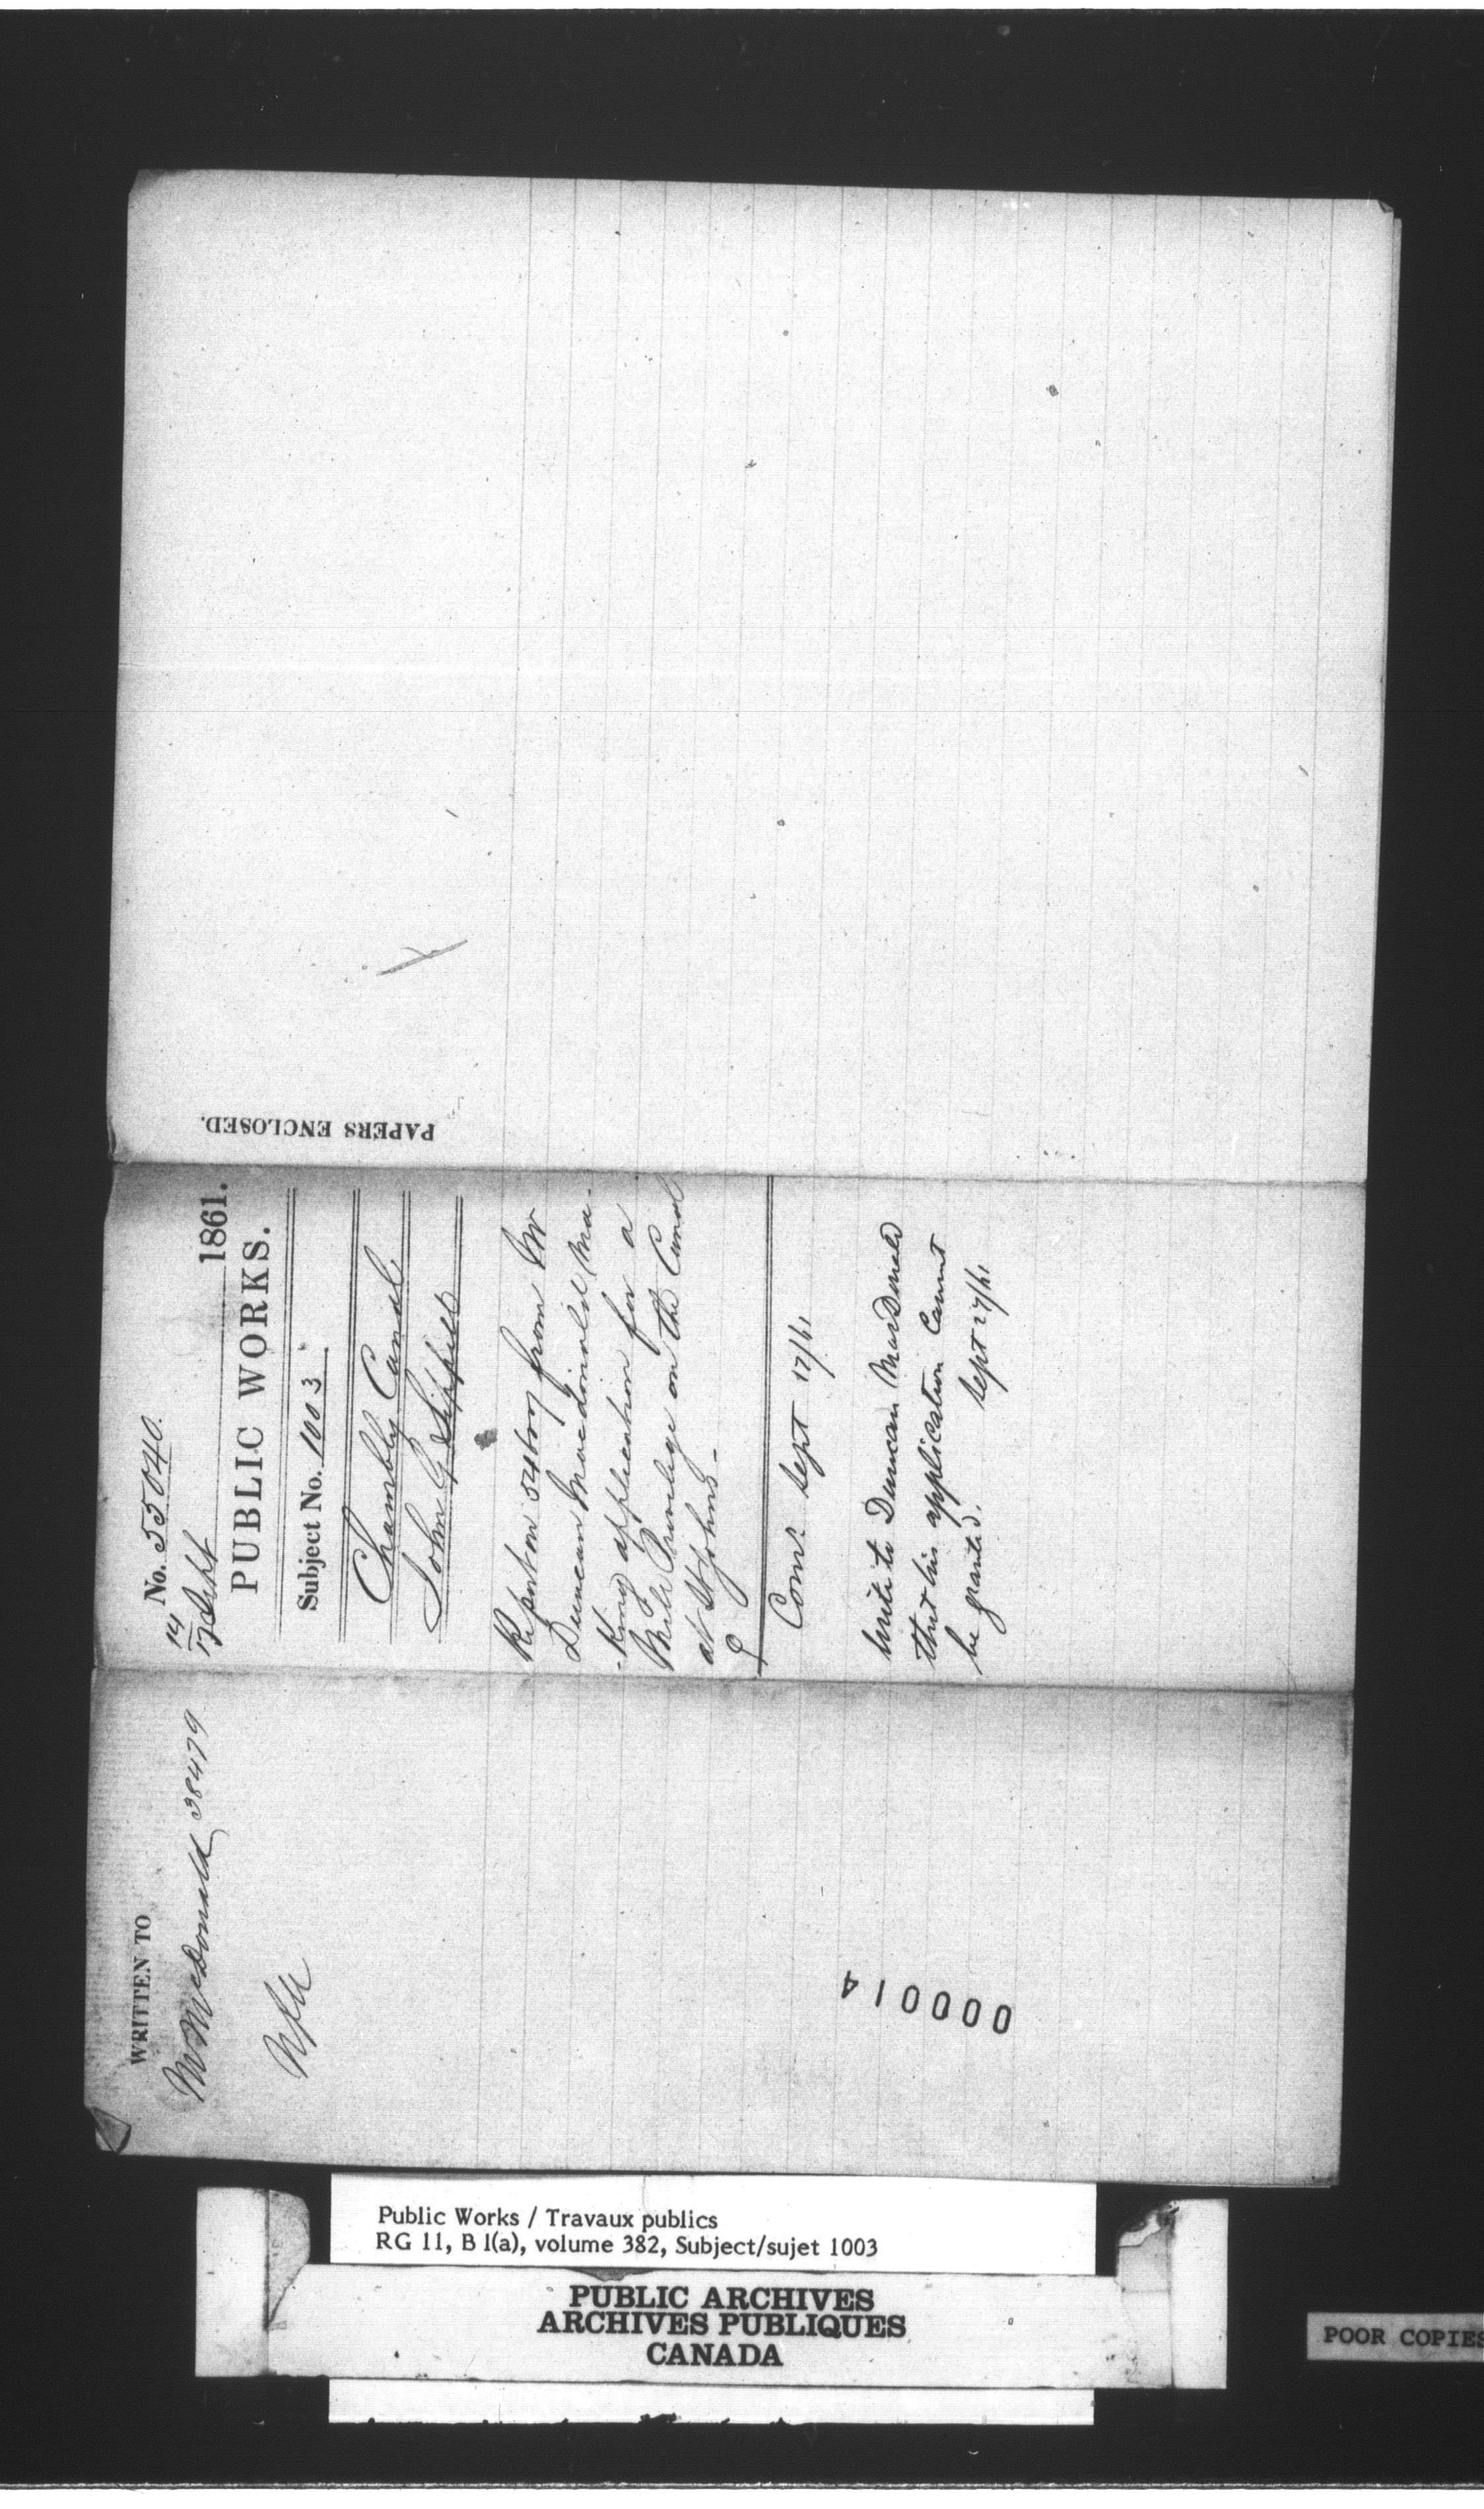 PAPERS ENCLOSED.
No. 55040.
14
17 Sept 1861.
PUBLIC WORKS.
Subject No. 1003
Chambly Canal
John G Sippell
Report on 54607 from Mr
Duncan Macdonald Ma-
-king application for a
Mill Privilege on the Canal
at St Johns -
Comr. Sept 17/61
Write to Duncan MacDonald
that his application Cannot
be granted. Sept 27/61
WRITTEN TO
Mr McDonald 38479
000014
Public Works / Travaux publics
RG 11, B 1(a), volume 382, Subject/sujet 1003
PUBLIC ARCHIVES
ARCHIVES PUBLIQUES
CANADA
POOR COPIES